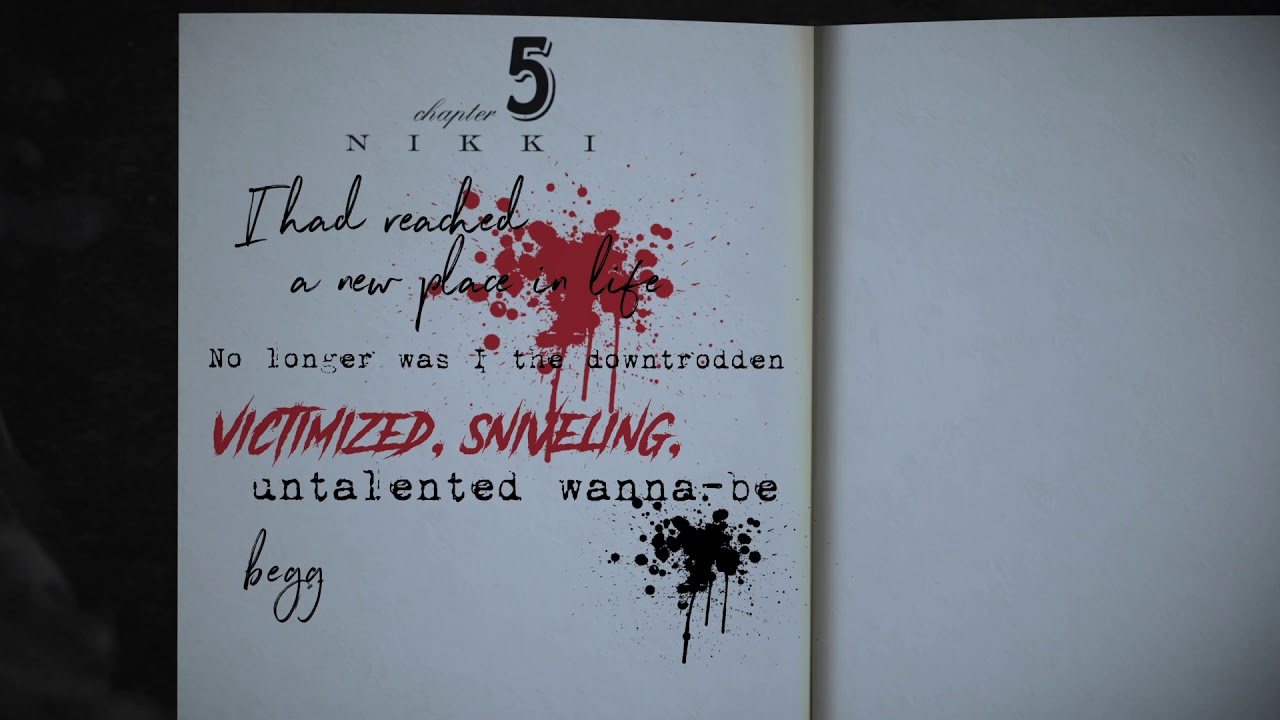 chapter 5
NIKKI
I had reached
a new place in life
No longer was I the downtrodden
VICTIMIZED. SNIVELING.
untalented wanna-be
begg